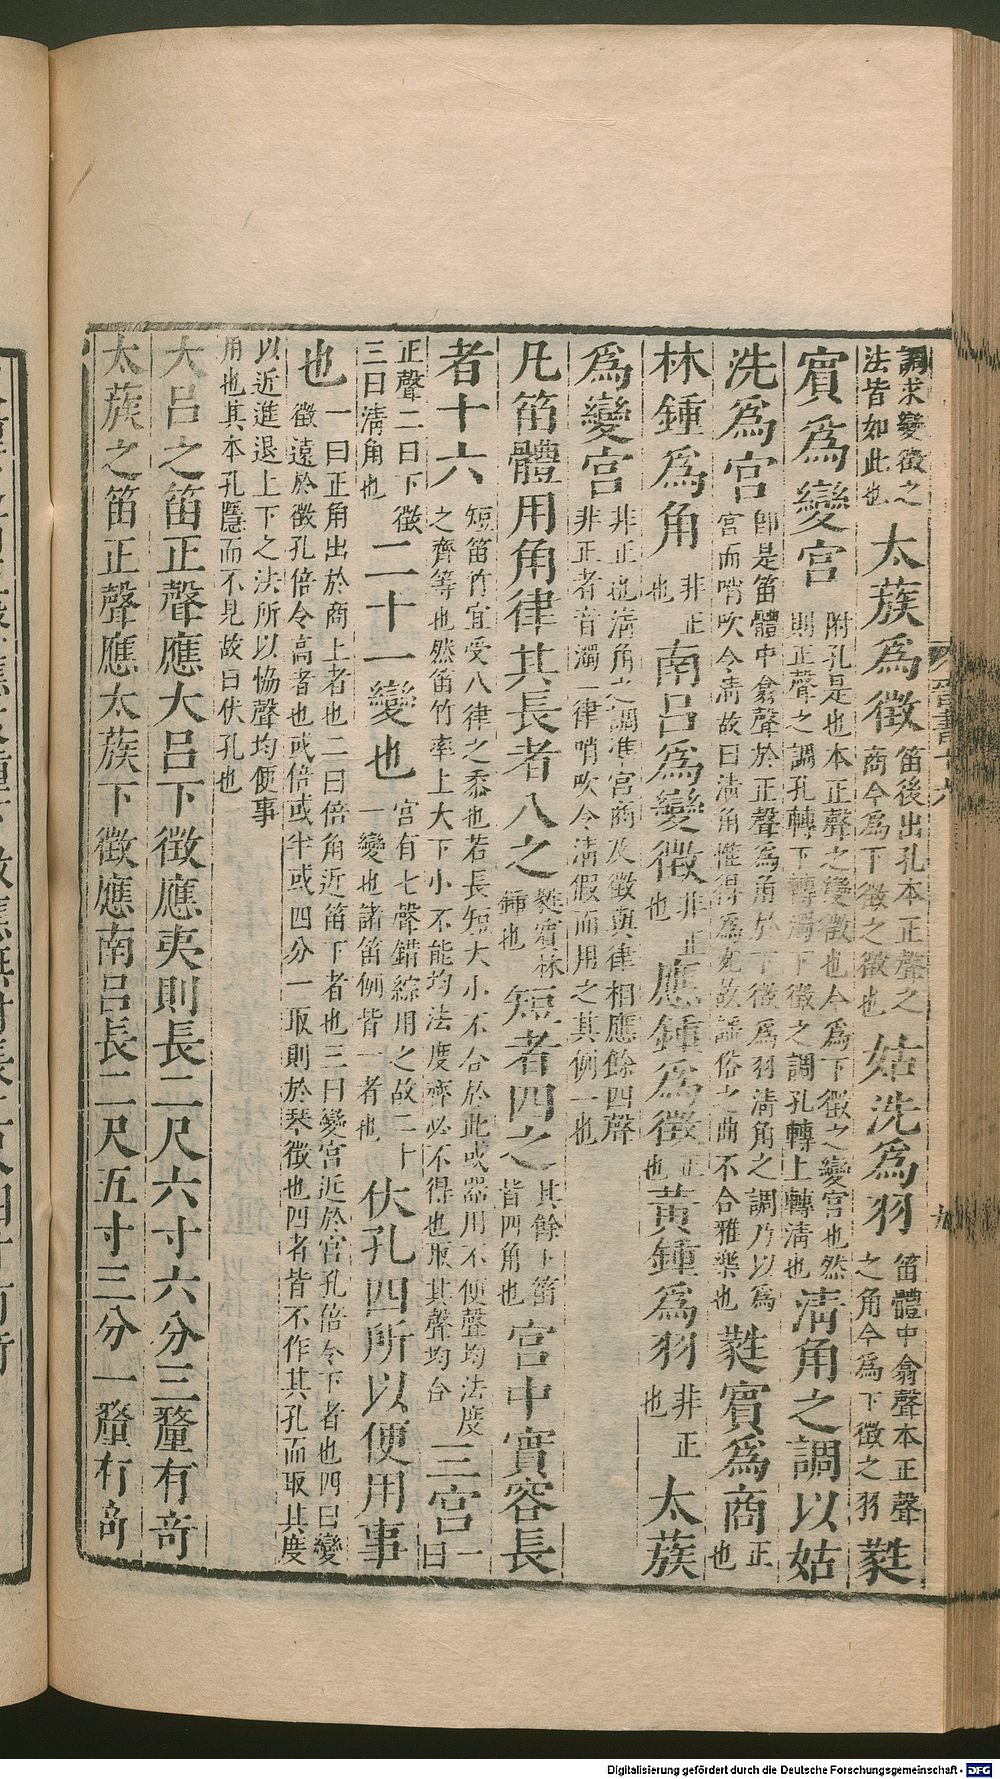 調求變徵之法皆如此也太蔟爲徵笛後出孔本正聲之商今爲下徵之徵也姑洗爲羽笛體中翕聲本正聲之角今爲下徵之羽蕤
賓爲變宮附孔是也本正聲之變徵也今爲下徵之變宮也然則正聲之調孔轉下轉濁下徵之調孔轉上轉清也清角之調以姑
洗爲宮卽是笛體中翕聲於正聲爲角於下徵爲羽清角之調乃以爲宮而哨吹令清故曰清角惟得爲宛故謡俗之曲不合雅樂也蕤賓爲商正也
林鍾爲角非正也南呂爲變徵非正也應鍾爲徵正也黃鍾爲羽非正也太蔟
爲變宮非正也清角之調准宮商及徵與律相應餘四聲非正者音濁一律哨吹令清假而用之其例一也
凡笛體用角律其長者八之蕤賓林鍾也短者四之其餘十笛皆四角也宮中實容長
者十六短笛竹宜受八律之黍也若長短大小不合於此或器用不便聲均法度之齊等也然笛竹率上大下小不能均法度齊必不得也取其聲均合三宮一曰
正聲二曰下徵三曰清角也二十一變也宮有七聲錯綜用之故二十一變也諸笛例皆一者也伏孔四所以便用事
也一曰正角出於商上者也二曰倍角近笛下者也三曰變宮近於宮孔倍令下者也四曰變徵遠於徵孔倍令高者也或倍或半或四分一取則於琴徵也四者皆不作其孔而取其度
以近進退上下之決所以恊聲均便事用也其本孔隱而不見故曰伏孔也
大呂之笛正聲應大呂下徵應夷則長二尺六寸六分三釐有奇
太蔟之笛正聲應太蔟下徵應南呂長二尺五寸三分一釐有奇
Digitalisierung gefördert durch die Deutsche Forschungsgemeinschaft - DFG